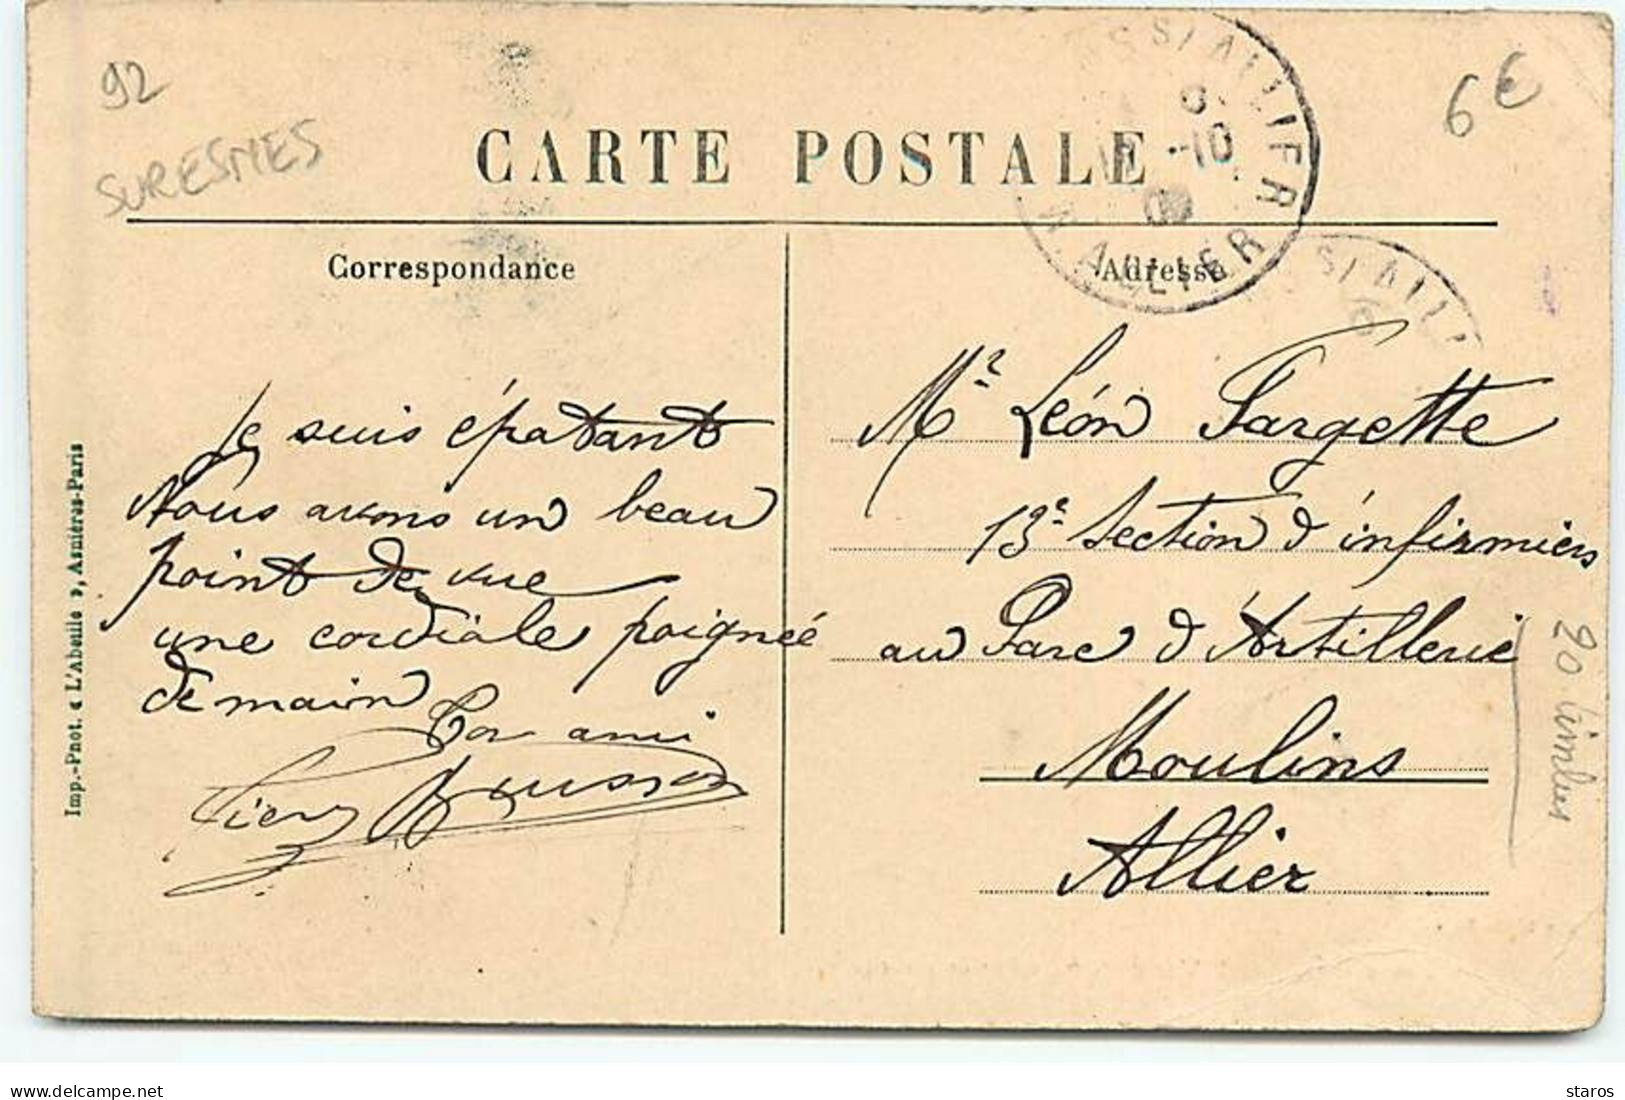 92
SURESNES
6€
CARTE POSTALE
S/ALLIER
10
09
ALLIER
S/ALLI
Correspondance
Adresse
Je suis épatant
Nous avons un beau
point de vue
une cordiale poignée
de main
Ton ami
Imp.-Phot. « L'Abeille », Asnières-Paris
Mr Léon Fargette
13e Section d'infirmiers
au Parc d'Artillerie
Moulins
Allier
20 timbres
delcampe.net
staros